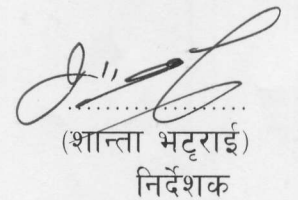 (शान्ता भट्टराई)
निर्देशक